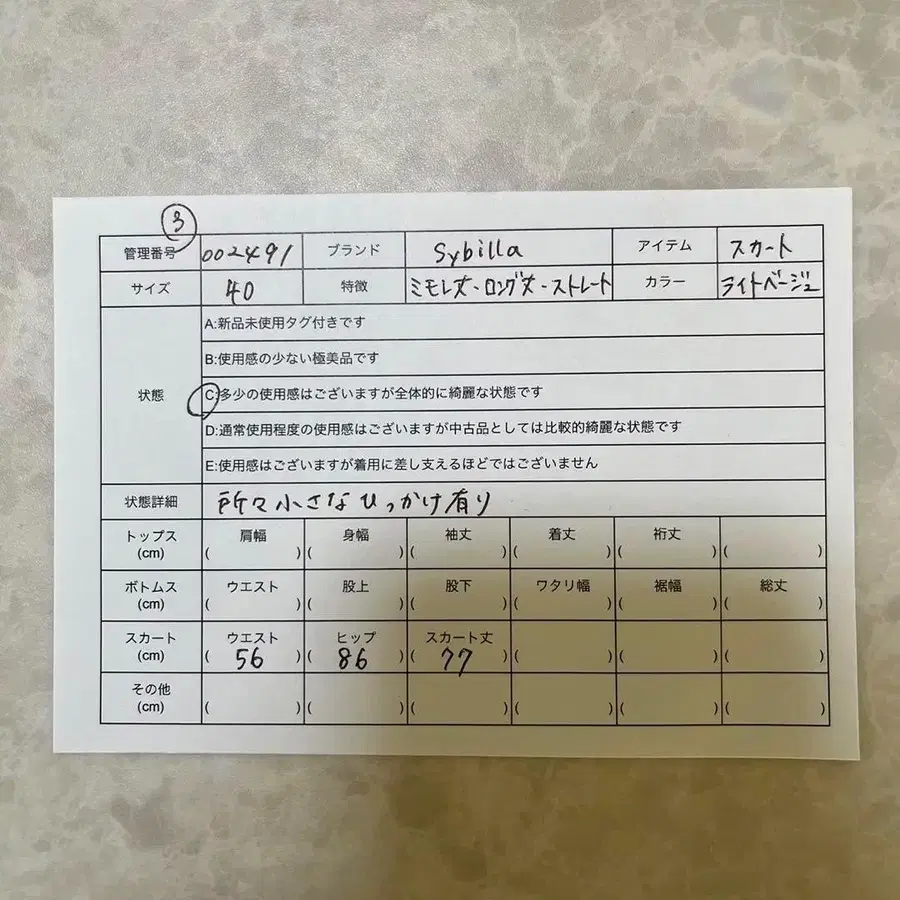 3
管理番号 002491 ブランド Sybilla アイテム スカート
サイズ 40 特徴 ミモレ丈・ロング丈・ストレート カラー ライトベージュ
A:新品未使用タグ付きです
B:使用感の少ない極美品です
状態 C:多少の使用感はございますが全体的に綺麗な状態です
D:通常使用程度の使用感はございますが中古品としては比較的綺麗な状態です
E:使用感はございますが着用に差し支えるほどではございません
状態詳細 所々小さなひっかけ有り
トップス 肩幅 身幅 袖丈 着丈 裄丈
(cm) ( ) ( ) ( ) ( ) ( ) ( )
ボトムス ウエスト 股上 股下 ワタリ幅 裾幅 総丈
(cm) ( ) ( ) ( ) ( ) ( ) ( )
スカート ウエスト ヒップ スカート丈
(cm) ( 56 ) ( 86 ) ( 77 ) ( ) ( ) ( )
その他
(cm) ( ) ( ) ( ) ( ) ( ) ( )